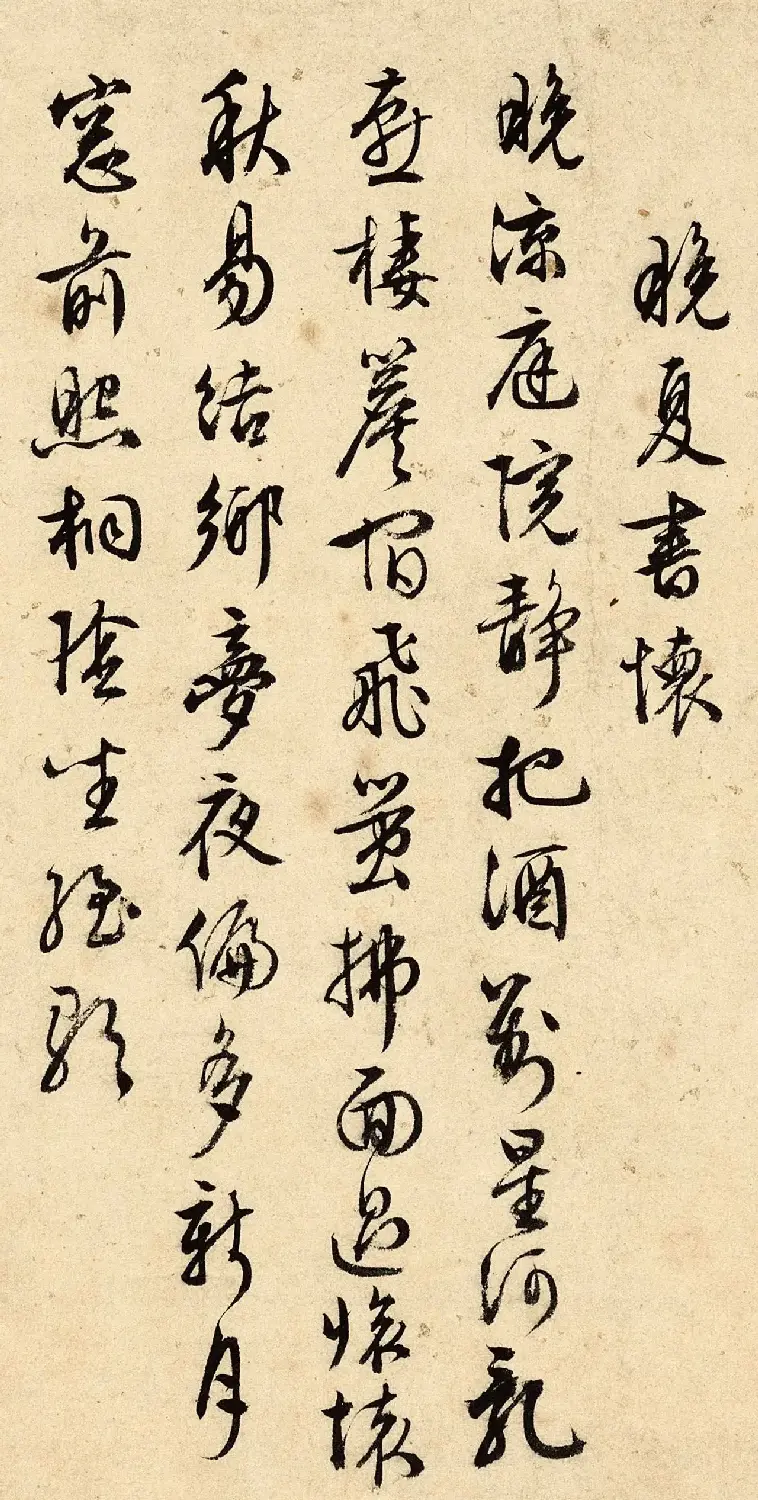 晚夏書懷
晚涼庭院靜把酒對星河亂
燕棲簷宿飛螢拂面過懷
秋易結鄉夢夜偏多新月
窓前照桐陰坐歌